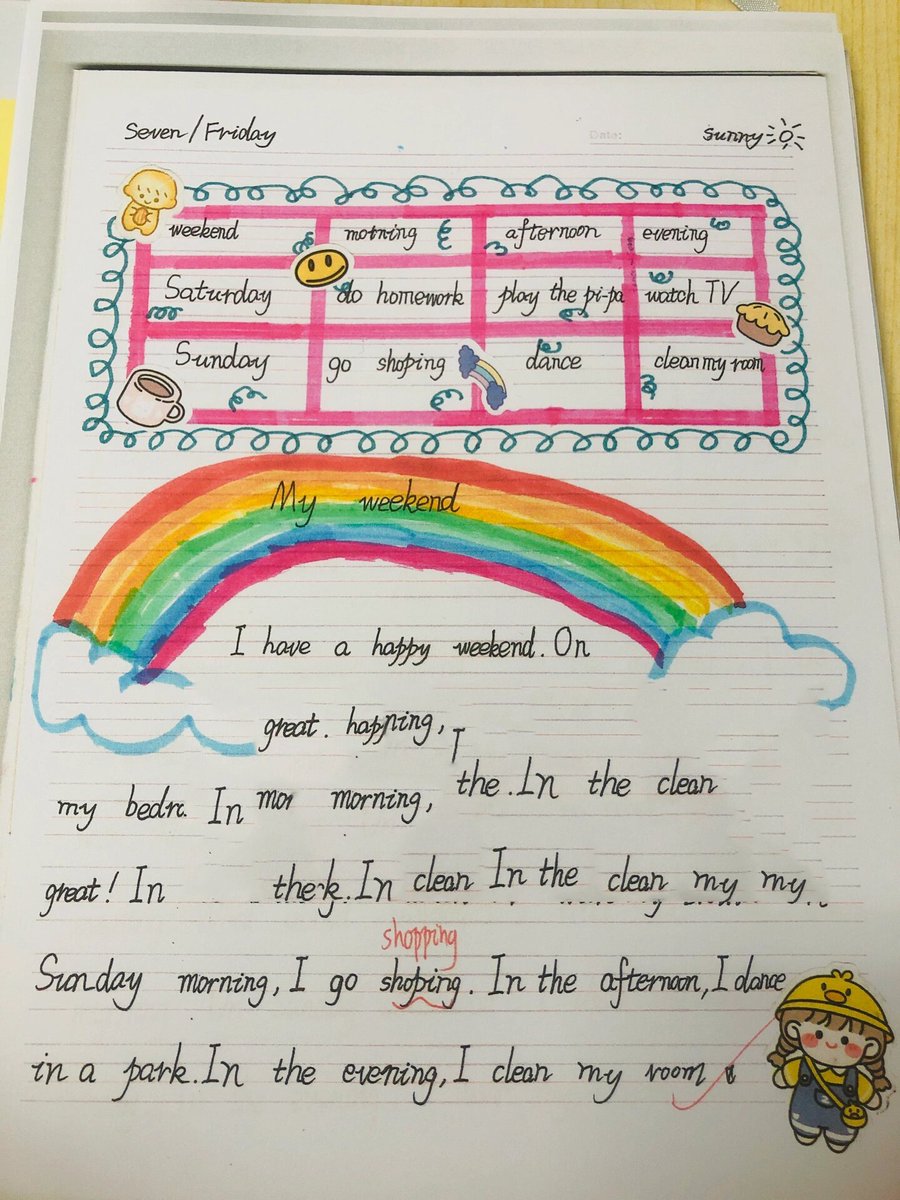 Seven/Friday Date: sunny
weekend morning afternoon evening
Saturday do homework play the pi-pa watch TV
Sunday go shoping dance clean my room
My weekend
I have a happy weekend. On
great.
my In morning, the .In the clean
great! In .In clean In the clean my my
shopping
Sunday morning, I go shoping. In the afternoon, I dance
in a park. In the evening, I clean my room